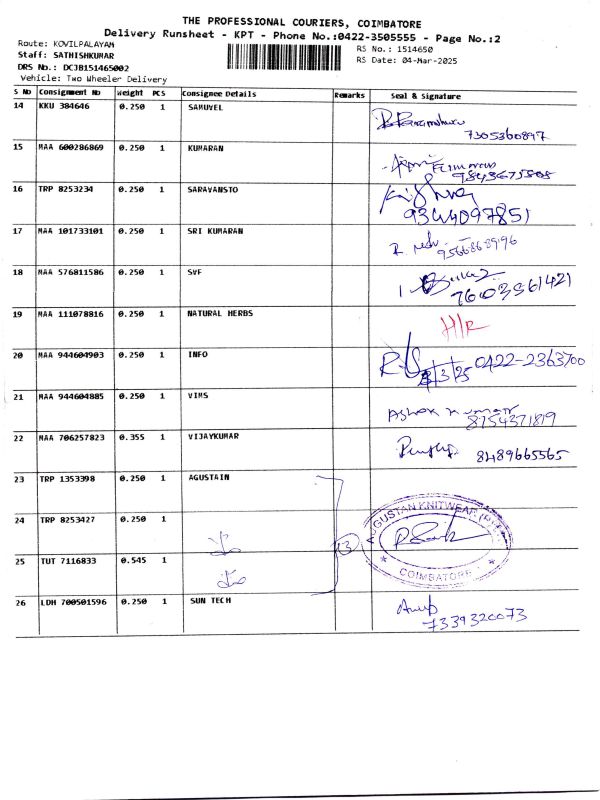 THE PROFESSIONAL COURIERS, COIMBATORE
Delivery Runsheet - KPT - Phone No.:0422-3505555 - Page No.:2
Route: KOVILPALAYAM
RS No.: 1514650
Staff: SATHISHKUMAR
RS Date: 04-Mar-2025
DRS No.: DCJB151465002
Vehicle: Two Wheeler Delivery
S No Consignment No Weight PCS Consignee Details Remarks Seal & Signature
14 KKU 384646 0.250 1 SAMUVEL
7305360897
15 MAA 600286869 0.250 1 KUMARAN
9843675808
16 TRP 8253234 0.250 1 SARAVANSTO
9344097851
17 MAA 101733101 0.250 1 SRI KUMARAN
9566868996
18 MAA 576811586 0.250 1 SVF
7603561421
19 MAA 111078816 0.250 1 NATURAL HERBS H/R
20 MAA 944604903 0.250 1 INFO 0422-2363700
3/25
21 MAA 944604885 0.250 1 VIMS Ashok Kumar
8754371819
22 MAA 706257823 0.355 1 VIJAYKUMAR 8489665565
23 TRP 1353398 0.250 1 AGUSTAIN
24 TRP 8253427 0.250 1
(3) AUGUSTAN KNITWEAR
COIMBATORE
25 TUT 7116833 0.545 1
26 LDH 700501596 0.250 1 SUN TECH Anup
7339320073